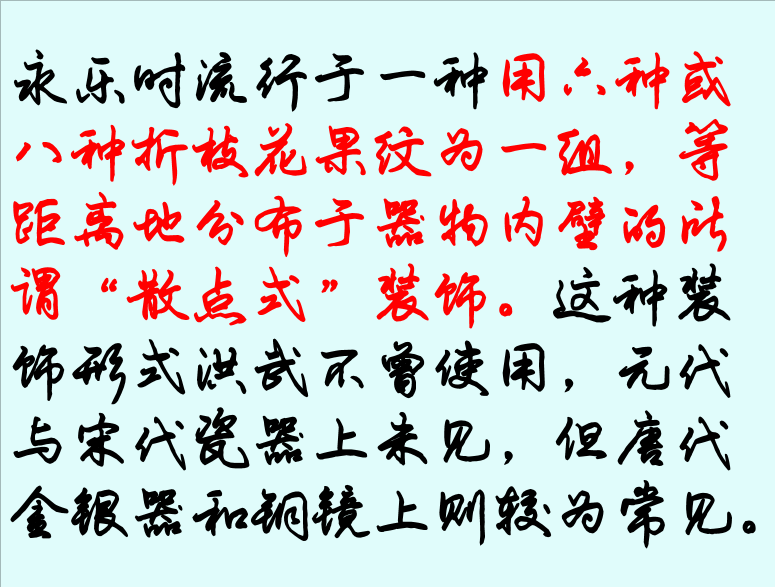 永乐时流行于一种用六种或
八种折枝花果纹为一组，等
距离地分布于器物内壁的所
谓“散点式”装饰。这种装
饰形式洪武不曾使用，元代
与宋代瓷器上未见，但唐代
金银器和铜镜上则较为常见。